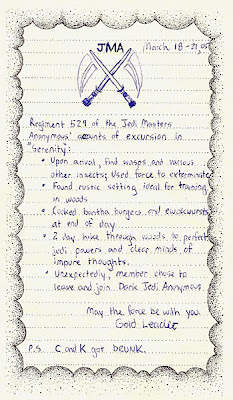 JMA
March 18-21, 05
Regiment 529 of the Jedi Masters
Anonymous' accounts of excursion in
"Serenity":
• Upon arrival, find wasps and various
other insects; Used force to exterminate
• Found rustic setting ideal for training
in woods
• Cooked bantha burgers and ewokwursts
at end of day
• 2 day hike through woods to perfect
jedi powers and clear minds of
impure thoughts.
• Unexpectedly, member chose to
leave and join Dark Jedi Anonymous.
May the force be with you.
Gold Leader
P.S. C and K got DRUNK.